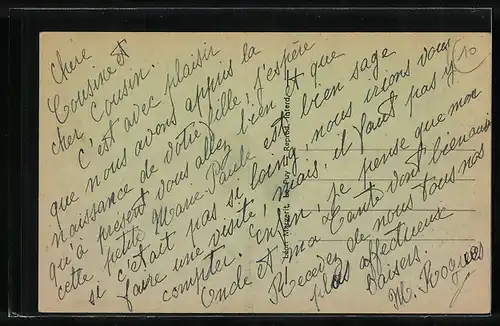 Chère
Cousine et
cher Cousin.
C'est avec plaisir
que nous avons appris la
naissance de votre fille, j'espère
qu'à présent vous allez bien et que
cette petite Marie-Paule est bien sage
si c'était pas si loin, nous irions vous
faire une visite, mais il faut pas y
compter. Enfin, je pense que mon
Oncle et ma Tante vont bien aussi
Recevez de nous tous nos
plus affectueux
baisers.
M. Roques
10
Le Puy
Reprod. Interd.